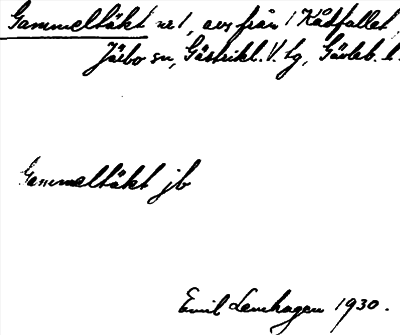 Gammeltäkt nr 1, avs från 1 Kåtfallet,
Järbo sn, Gästrikl. V. tg, Gävleb. l.
Gammeltäkt jb
Emil Lenhagen 1930.